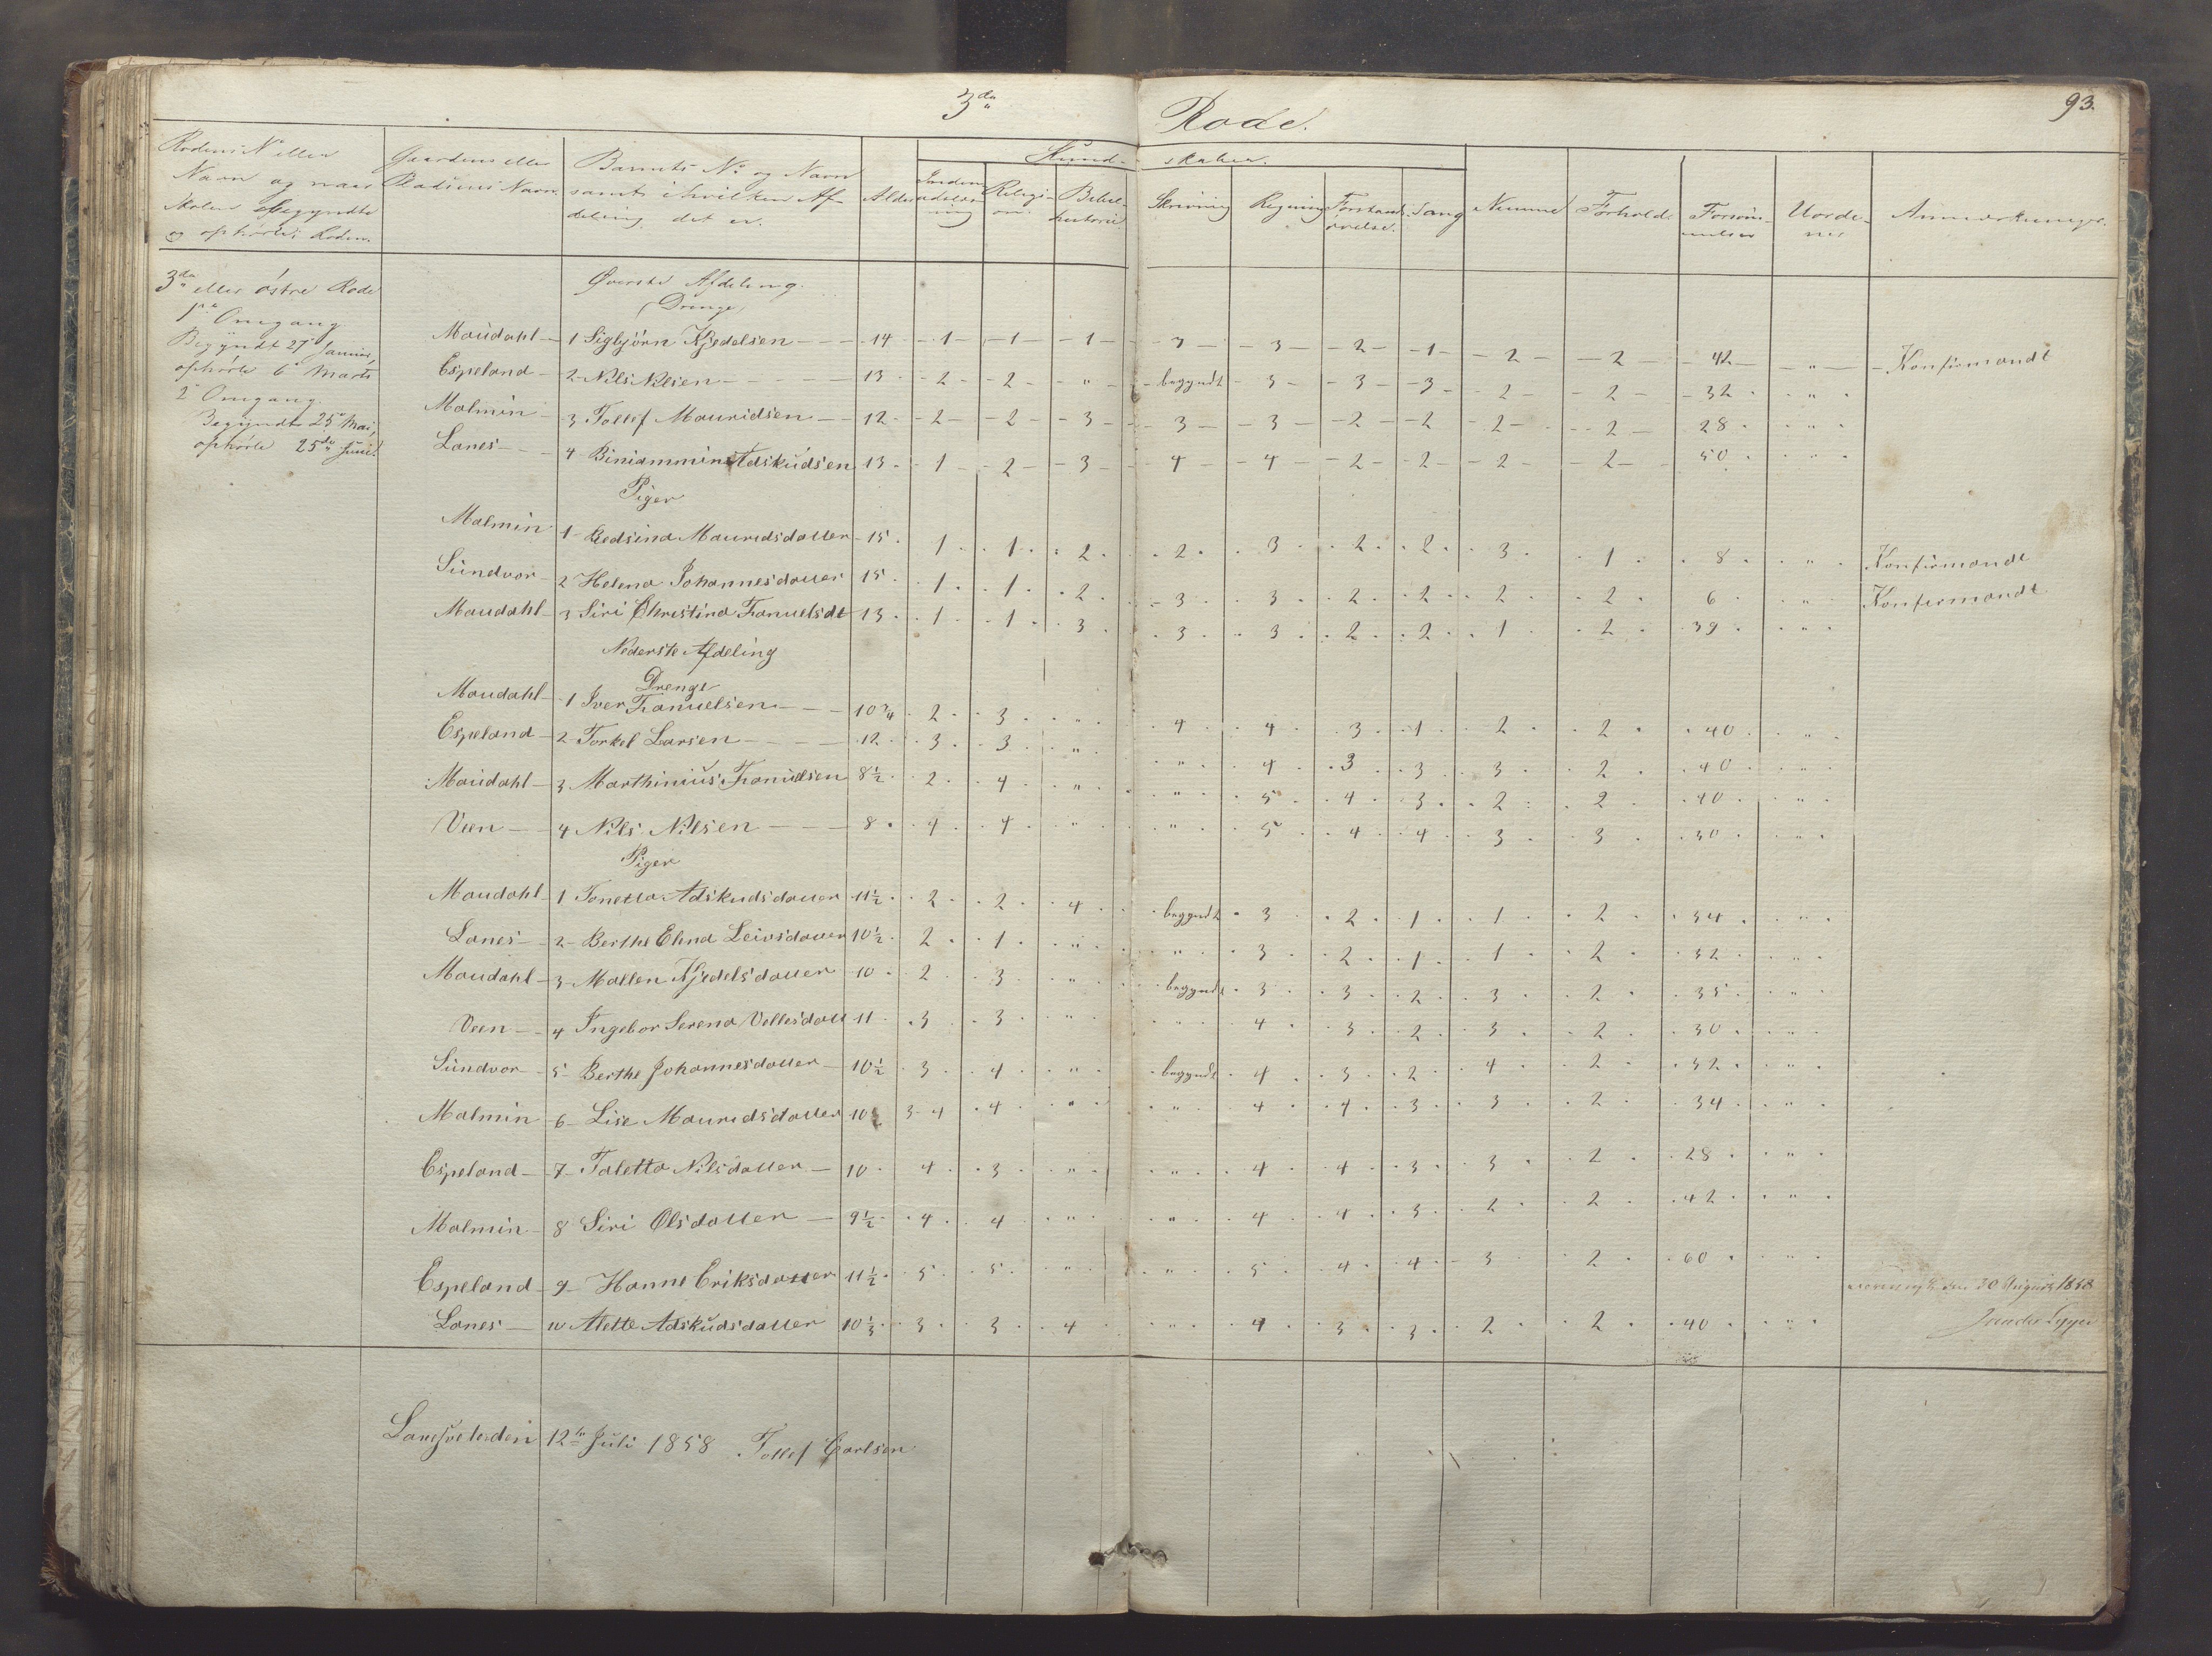 3die Rode.
93.
Rodens No eller Navn og naar Skolen begyndte og ophørte i Roden.
Gaardens eller Pladsens Navn.
Barnets No og Navn samt i hvilken Afdeling det er.
Alder
Kundskaber.
Religion
Bibelhistorie
Skrivning
Regning
Forstandsøvelse.
Sang
Nemme
Forhold
Forsømmelser
Uordener
3die eller østre Rode
1ste Omgang
Begyndt 27 Januar,
ophørte 6 Marts
2 Omgang.
Begyndt 25 Mai,
ophørte 25de Juni.
Øverste Afdeling.
Drenge
Maudahl 1 Sigbjørn Kjedelsen 14 1 1 1 3 3 2 1 2 2 42 " Konfirmandt
Espeland 2 Nils Nilsen 13 2 2 " begyndt 3 3 3 2 2 32 "
Malmin 3 Tollef Mauridsen 12 2 2 3 3 3 2 2 2 2 28 "
Lanes 4 Biniammin Adskudsen 13 1 2 3 4 4 2 2 2 2 50 "
Piger
Malmin 1 Mauridsdatter 15 1 1 2 2 3 2 2 3 1 8 " Konfirmandt
Sundvor 2 Helena Johannesdatter 15 1 1 2 3 3 2 2 2 2 6 " Konfirmandt
Maudahl 3 Siri Christina 13 1 1 3 3 3 2 2 1 2 39 "
Nederste Afdeling
Drenge
Maudahl 1 Iver 10 3/4 2 3 " 4 4 3 1 2 2 40 "
Espeland 2 Torkel Larsen 12 3 3 " " 4 3 3 3 2 40 "
Maudahl 3 Marthinius 8 1/2 2 4 " " 5 4 3 2 2 40 "
Veen 4 Nils Nilsen 8 4 4 " " 5 4 4 3 3 30 "
Piger
Maudahl 1 Tonetta Adskudsdatter 11 1/2 2 2 4 begyndt 3 2 1 1 2 34 "
Lanes 2 Berthe Elina Leivsdatter 10 1/2 2 1 " " 3 2 1 1 2 32 "
Maudahl 3 Mallen Kjedelsdatter 10 2 3 " begyndt 3 3 2 3 2 35 "
Veen 4 Ingebor Serena 11 3 3 " " 4 3 2 3 2 30 "
Sundvor 5 Berthe Johannesdatter 10 1/2 3 4 " begyndt 4 3 2 4 2 32 "
Malmin 6 Lise Mauridsdatter 10 3-4 4 " " 4 4 3 3 2 34 "
Espeland 7 Taletta Nilsdatter 10 4 3 " " 4 4 3 3 2 28 "
Malmin 8 Siri Olsdatter 9 1/2 4 4 " " 4 4 3 2 2 42 "
Espeland 9 Hanne Eriksdatter 11 1/2 5 5 " " 5 4 4 3 2 60 "
Lanes 10 Alette Adskudsdatter 10 1/3 3 3 4 " 4 3 3 2 2 40 "
den 30 August 1858
den 12te Juli 1858 Tollef Carlsen